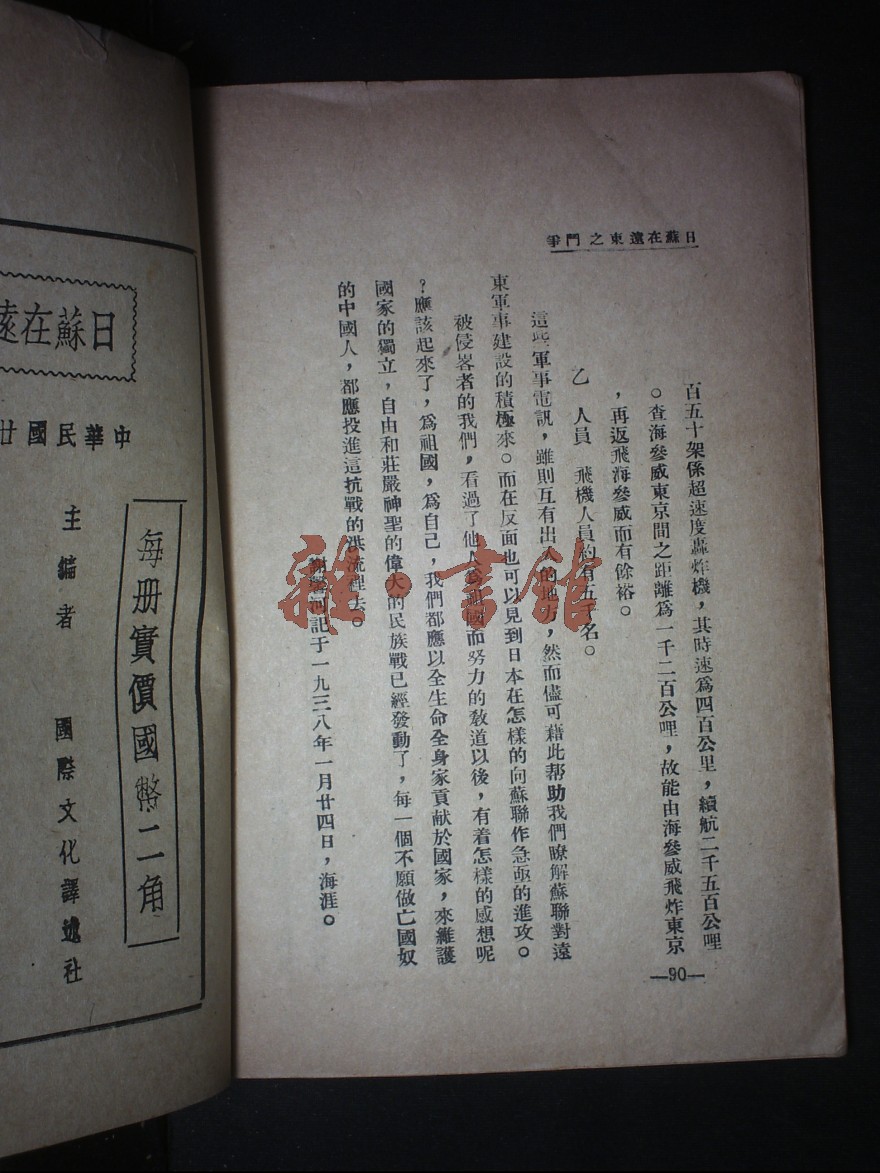 日蘇在遠東之鬥爭
百五十架係超速度轟炸機，其時速爲四百公里，續航二千五百公哩
。查海參威東京間之距離爲一千二百公哩，故能由海參威飛炸東京
，再返飛海參威而有餘裕。
乙　人員　飛機人員約有五千名。
這些軍事電訊，雖則互有出入的地方，然而儘可藉此帮助我們瞭解蘇聯對遠
東軍事建設的積極來。而在反面也可以見到日本在怎樣的向蘇聯作急亟的進攻。
被侵畧者的我們，看過了他人爲祖國而努力的敎道以後，有着怎樣的感想呢
？應該起來了，爲祖國，爲自己，我們都應以全生命全身家貢献於國家，來維護
國家的獨立，自由和莊嚴神聖的偉大的民族戰已經發動了，每一個不願做亡國奴
的中國人，都應投進這抗戰的洪流裡去。
謝河記于一九三八年一月廿四日，海涯。
—90—
日蘇在遠
中華民國廿
每册實價國幣二角
主編者　國際文化譯述社
雜·書館